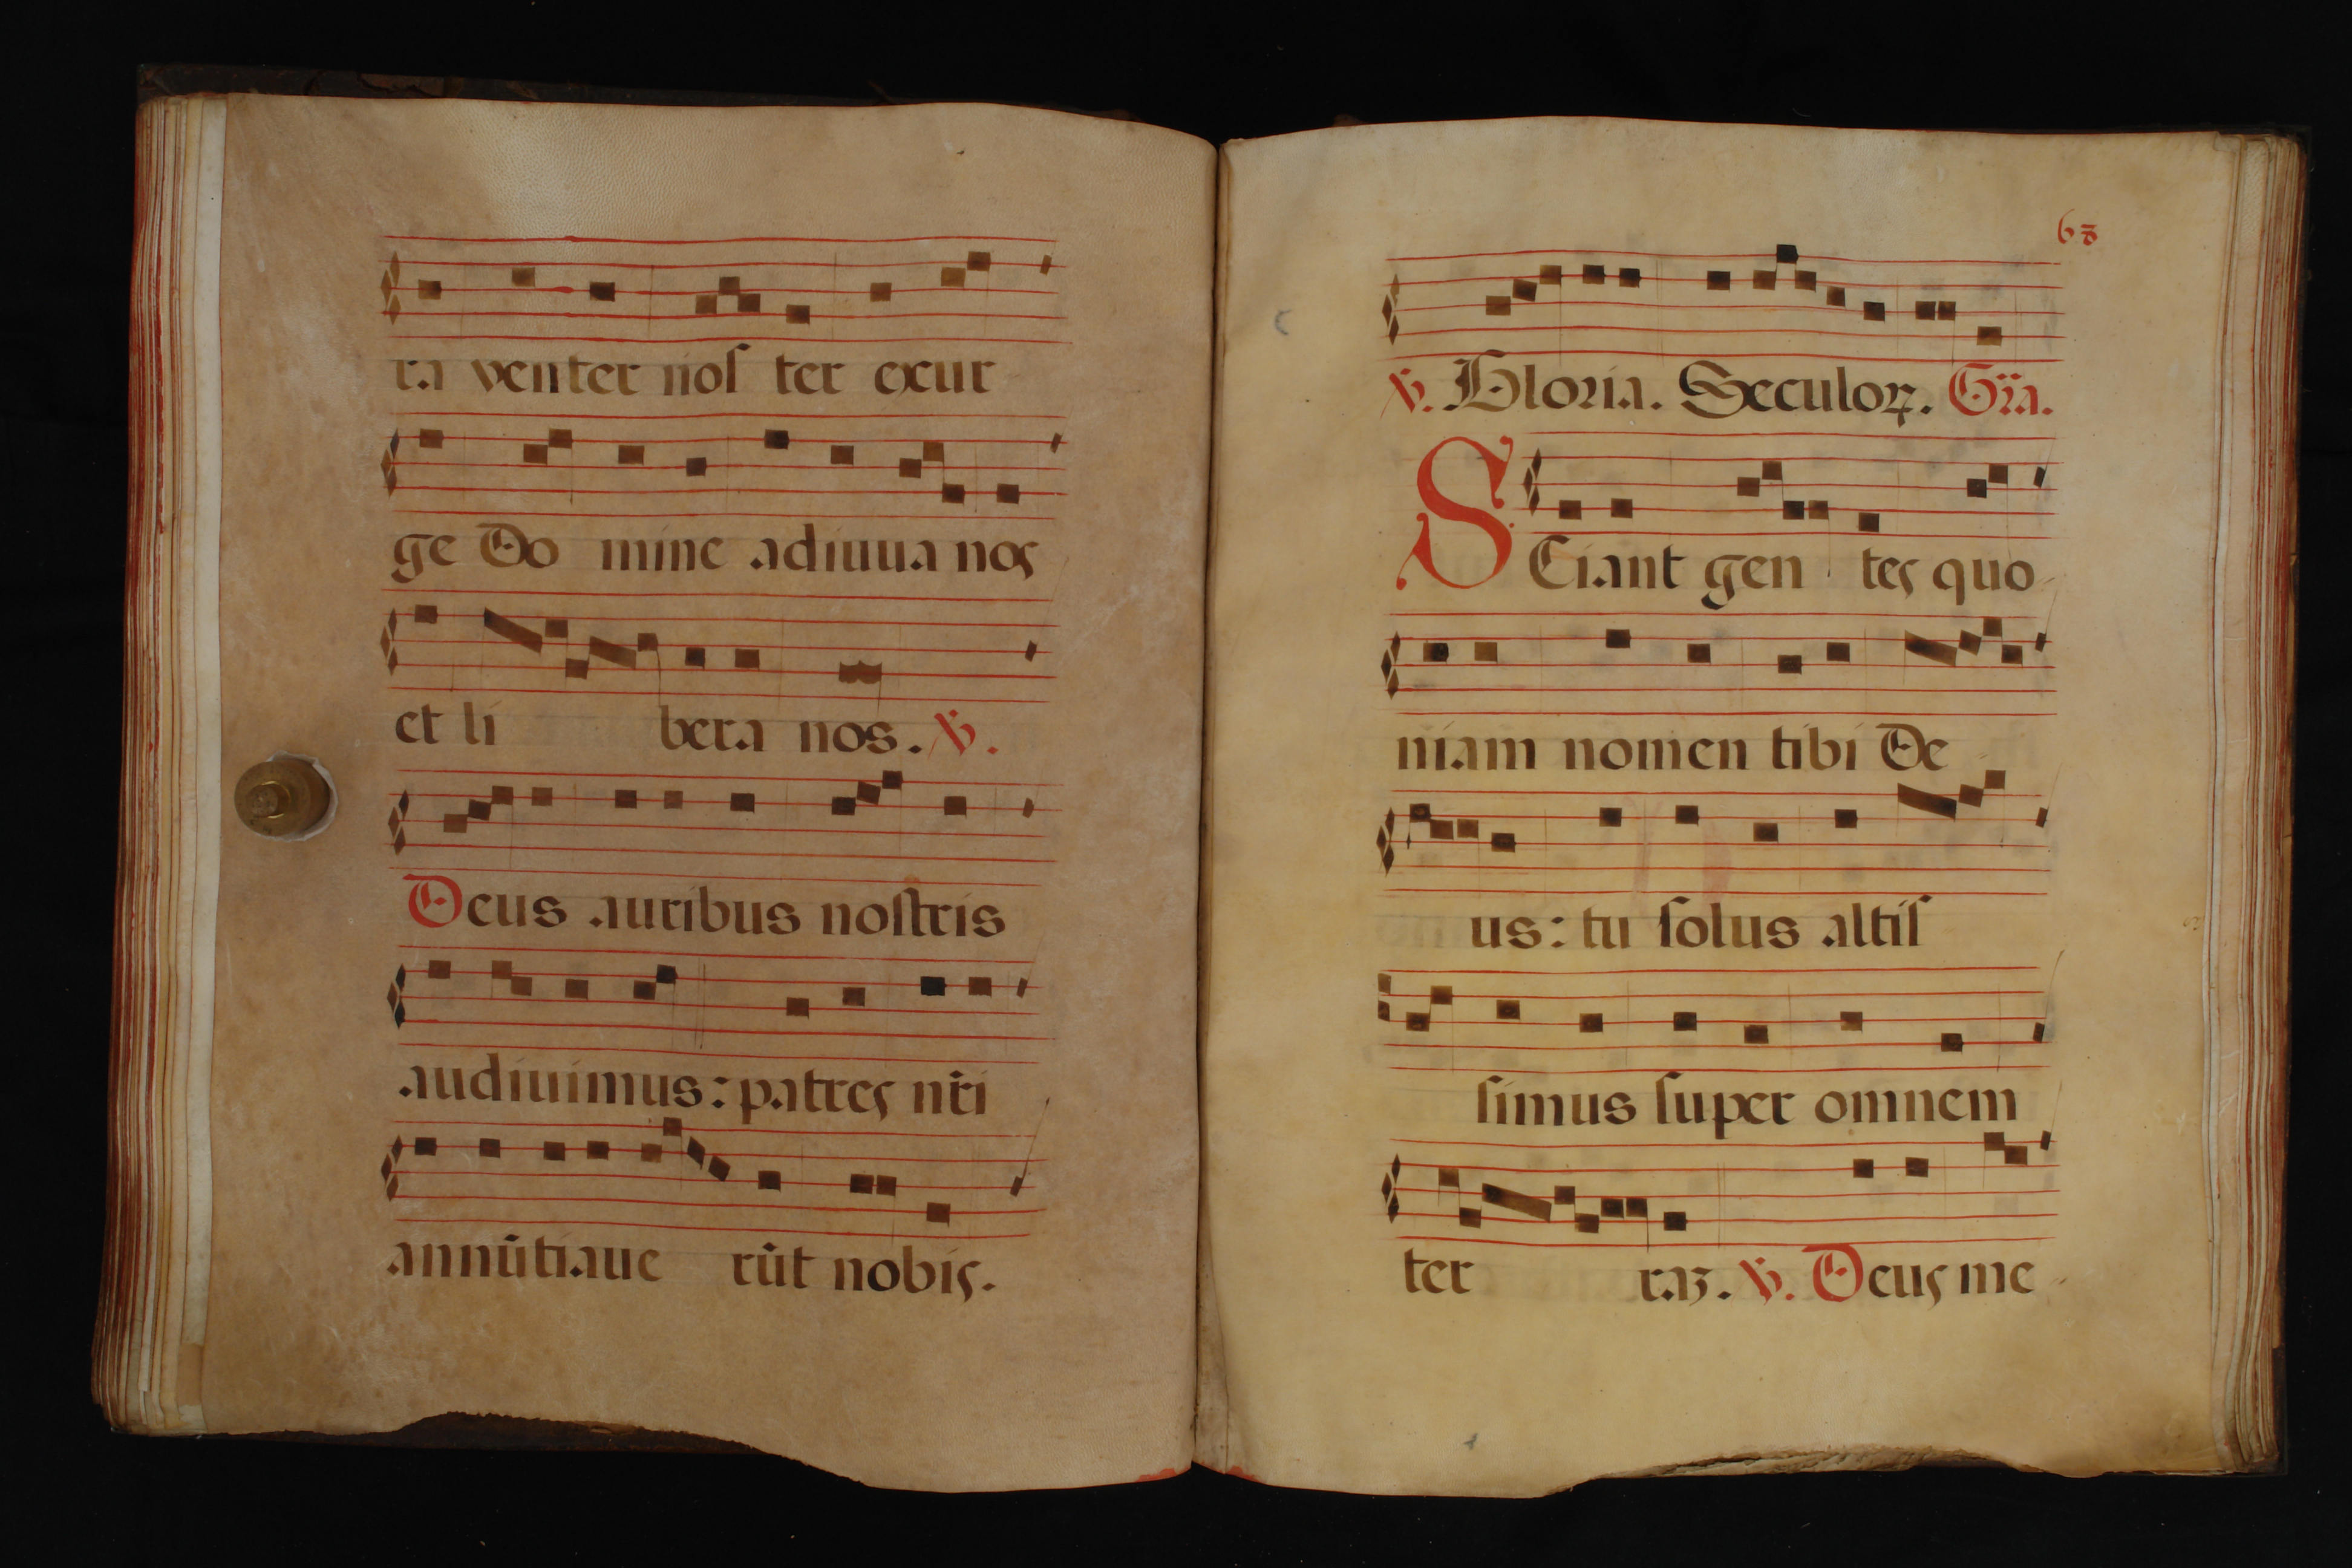 ra venter noſ ter exur
ge Do mine adiuua nos
et li bera nos. V.
Deus auribus noſtris
audiuimus: patres nr̃i
annũtiaue rũt nobis.
63
V. Gloria. Seculoꝝ. Gr̃a.
SCiant gen tes quo
niam nomen tibi De
us: tu ſolus altiſ
ſimus ſuper omnem
ter raʒ. V. Deus me